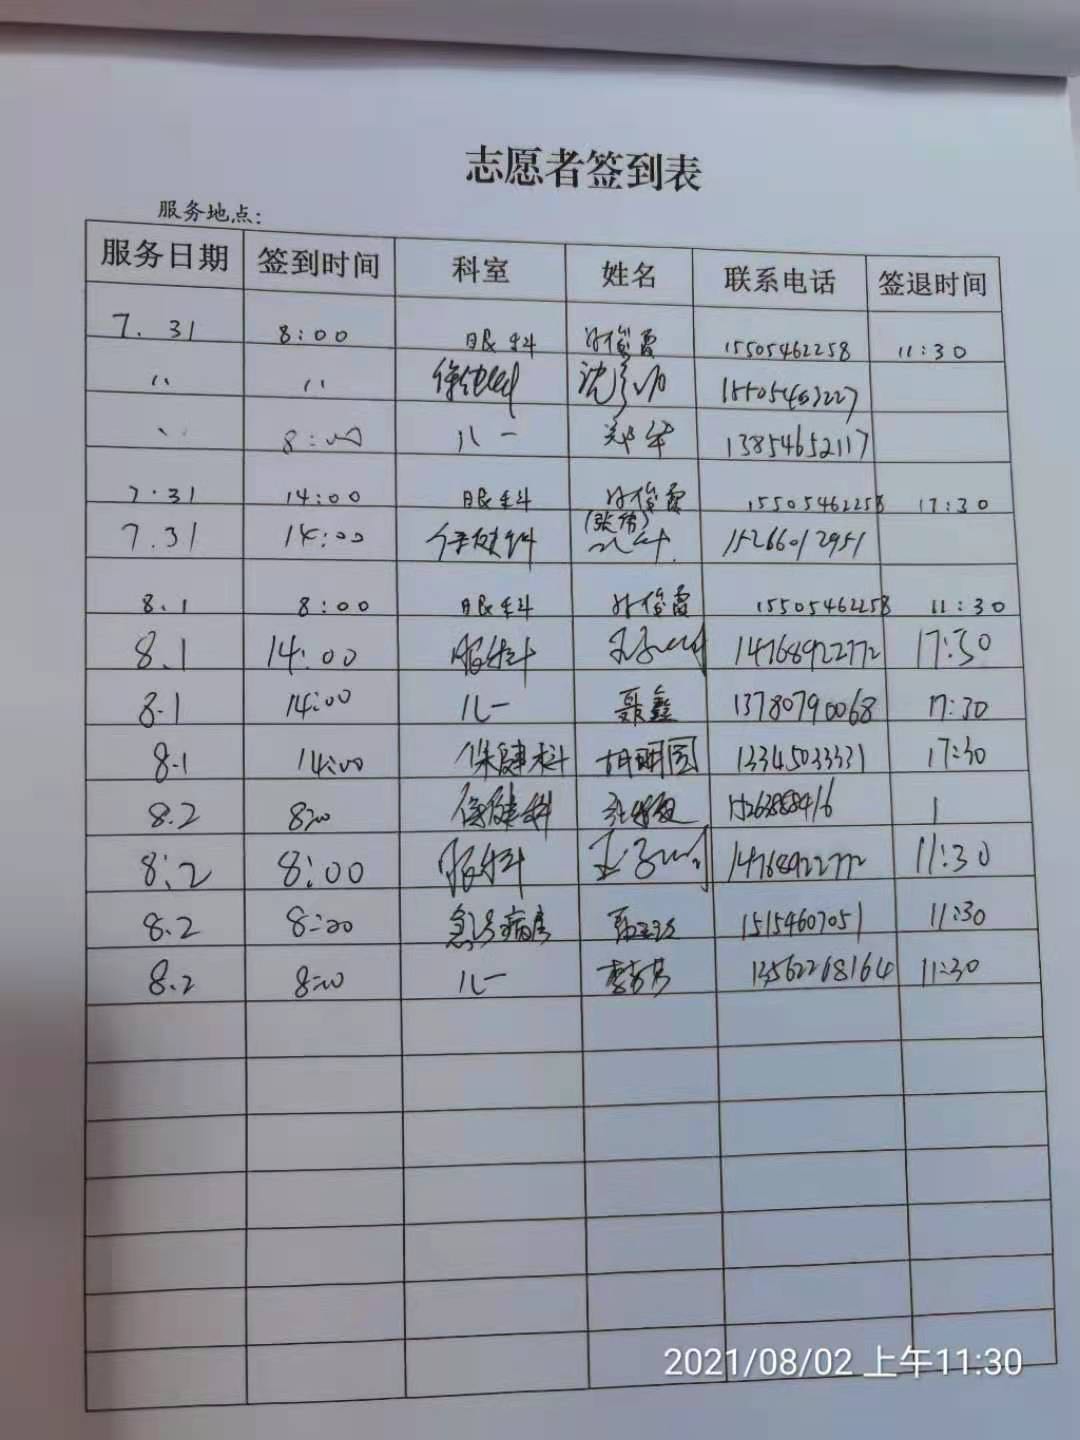 志愿者签到表
服务地点:
服务日期 签到时间 科室 姓名 联系电话 签退时间
7.31 8:00 眼科 孙俊霞 15505462258 11:30
〃 〃 保健科 沈
〃 8:00 儿一 郑华 13854652117
7.31 14:00 眼科 孙俊霞 15505462258 17:30
7.31 14:00 保健科 (张伟) 15266012951
8.1 8:00 眼科 孙俊霞 15505462258 11:30
8.1 14:00 眼科 王子 14768922772 17:30
8.1 14:00 儿一 聂鑫 13780790068 17:30
8.1 14:00 保健科 胡明圆 13345033331 17:30
8.2 8:00 保健科 15263888416
8:2 8:00 眼科 王子 14768922772 11:30
8.2 8:00 急诊病房 15154607051 11:30
8.2 8:00 儿一 李芳 13562268164 11:30
2021/08/02 上午11:30